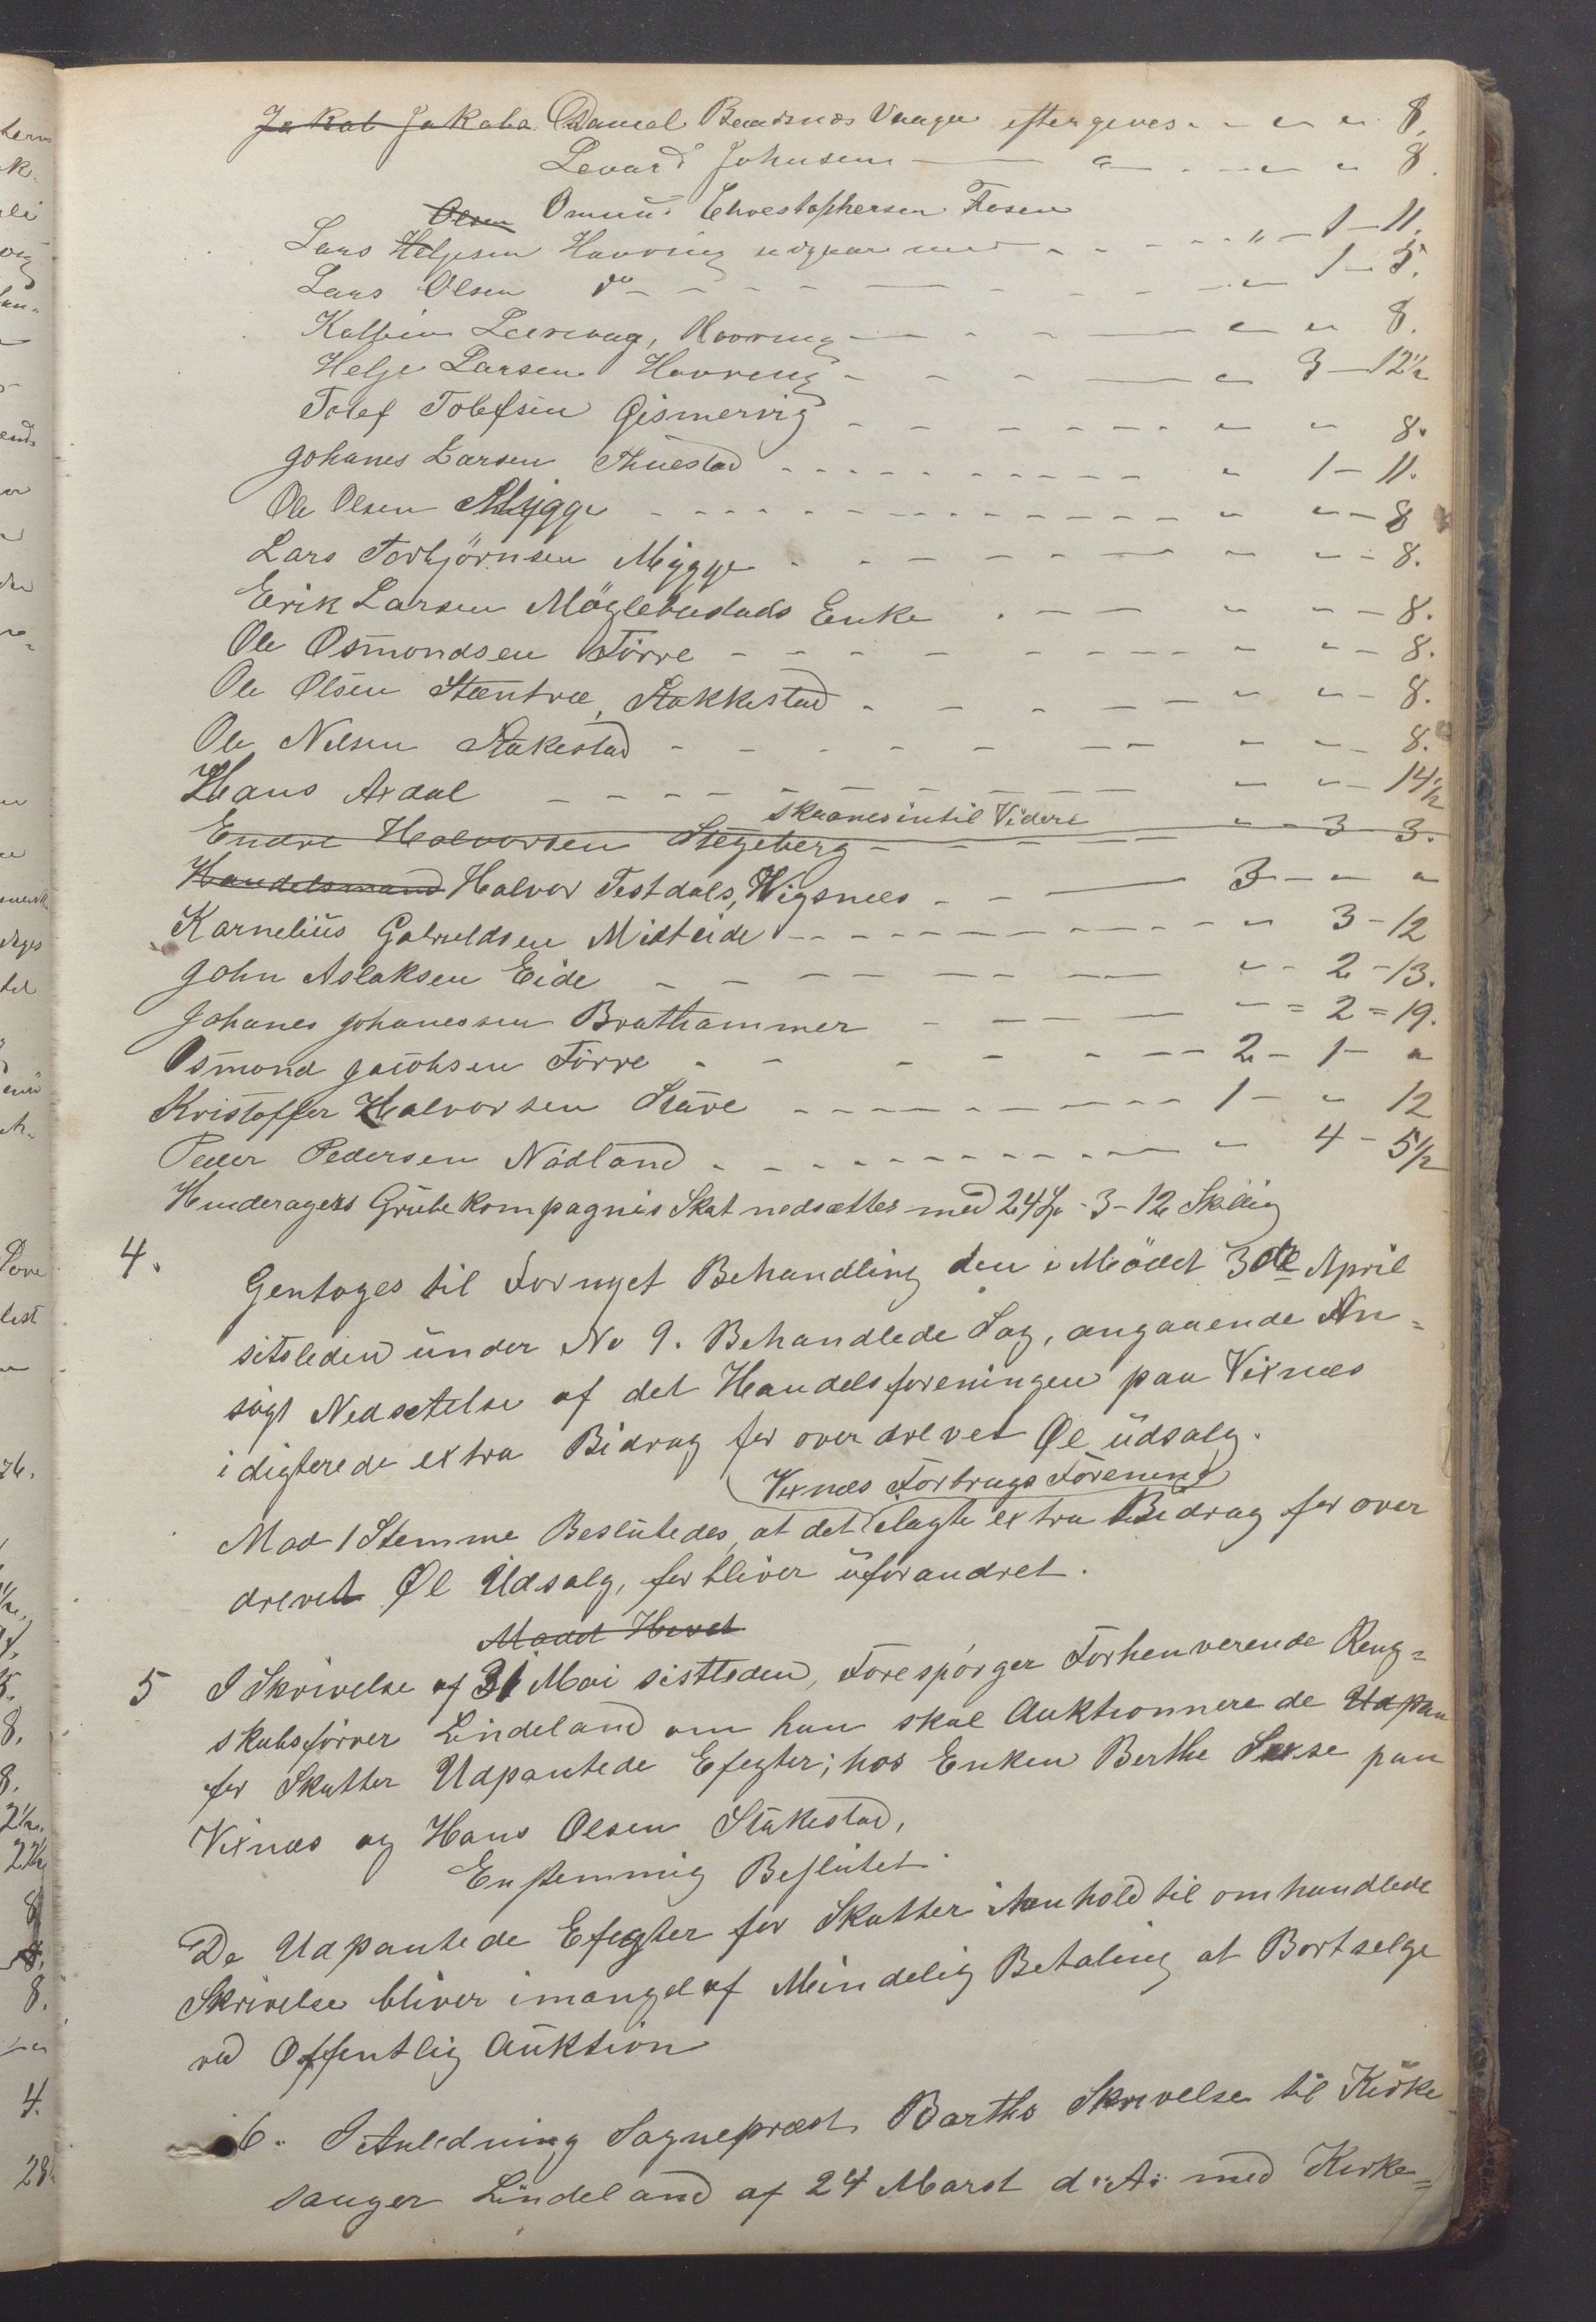 Jakob Jakobs Daniel Baadsnes Vaage eftergives - - " " 8.
Levard Johnsen — " - - " " 8.
Olsen Omund Chrestophersen Fosen
Lars Helgesen Havring udgaar med - - - - - " - 1 - 11.
Lars Olsen do - - - - - - - - " 1 - 5.
Kolbein Leervaag, Hovring - - - " " 8.
Helje Larsen Havreng - - - - " 3 - 12½
Tolef Tolefsen Gismervig - - - - - - " " 8.
Johanes Larsen Thuestad - - - - - - - - " 1 - 11.
Ole Olsen Mygge - - - - - - - - " " - 8
Lars Torbjörnsen Mygge - - - - - " " - 8.
Erik Larsen Möglebustads Enke - - - " " - 8.
Ole Osmondsen Förre - - - - - - - " " - 8.
Ole Olsen Stentræ, Stakkestad - - - - - " " - 8.
Ole Nelsen Stakestad - - - - - - " " - 8.
Hans Axdal - - - - - - - - " " - 14½
skaanes intil Videre
Endre Halvorsen Stegeberg - - - - " - 3 - 3.
Handelsmand Halvor Testdals, Vigsnes - - — 3 - " - "
Karnelius Gabrieldsen Midteide - - - - - - - " 3 - 12
John Aslaksen Eide - - - - - - " - 2 - 13.
Johanes Johanessen Brathammer - - - - " = 2 = 19.
Osmond Jacobsen Förre - - - - - - 2 - 1 - "
Kristoffer Halvorsen Stave - - - - - - - 1 - " 12
Peder Pedersen Nådland - - - - - - - " 4 - 5½
Hinderagers Grube kompagnis Skat nedsættes med 24 - 3 - 12 Skilling
4.
Gentoges til Fornyet Behandling den i Mödet 3de April
sitsleden under No 9. Behandlede Sag, angaaende An=
sögt Nedsettelse af det Handelsforeningen paa Vixnes
idigterede extra Bidrag for over drevet Øl udsalg.
Vixnes Forbrugs Forening
Mod 1 Stemme Beslutedes, at det elagte extra Bidrag for over
drevet Øl Udsalg, forbliver uforandret.
Mödet Hevet
5 I Skrivelse af 31 Mai sistleden, Forespörger Forhenverende Reng=
skabsförer Lindeland om han skal Auktionnere de Udpan
for Skatter Udpantede Efegter; hos Enken Berthe Sexse paa
Vixnes og Hans Olsen Stakestad,
Enstemmig Beslutet.
De Udpantede Efegter for Skatter i Anhold til omhandlede
Skrivelse bliver i mangel af Mindelig Betaling at Bortselge
ved Offentlig Auktion
6. I Anledning Sognepræst Barths Skrivelse til Kirke
sanger Lindeland af 24 Marst d: A: med Kirke=